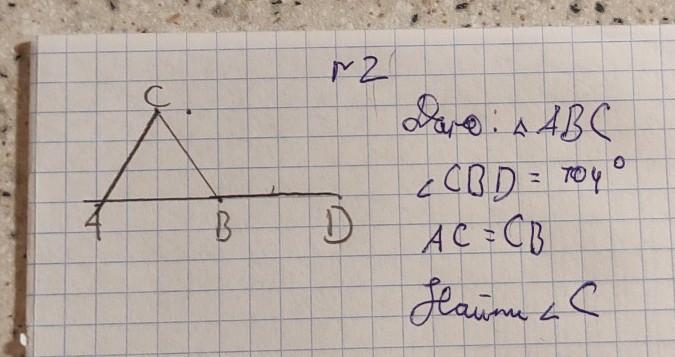 №2
C
A
B
D
Дано: △ABC
∠CBD = 104°
AC = CB
Найти ∠C